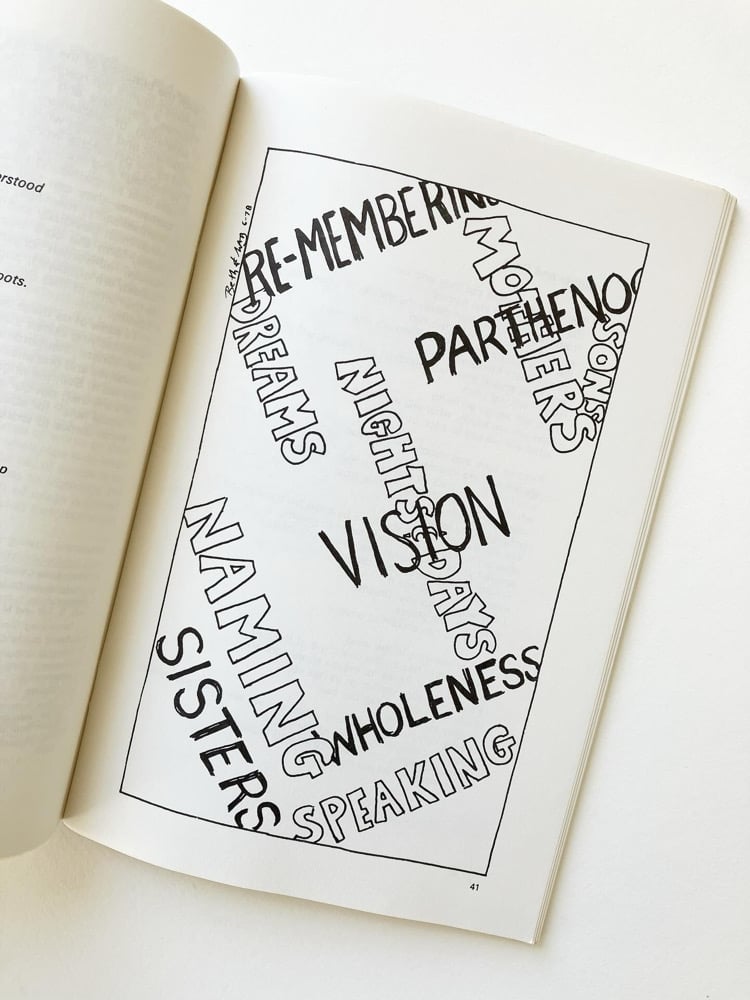 erstood
oots.
p
RE-MEMBERING
MOTHERS
PARTHENO
SONS
DREAMS
NIGHTS
DAYS
VISION
NAMING
SISTERS
WHOLENESS
SPEAKING
6-78
41